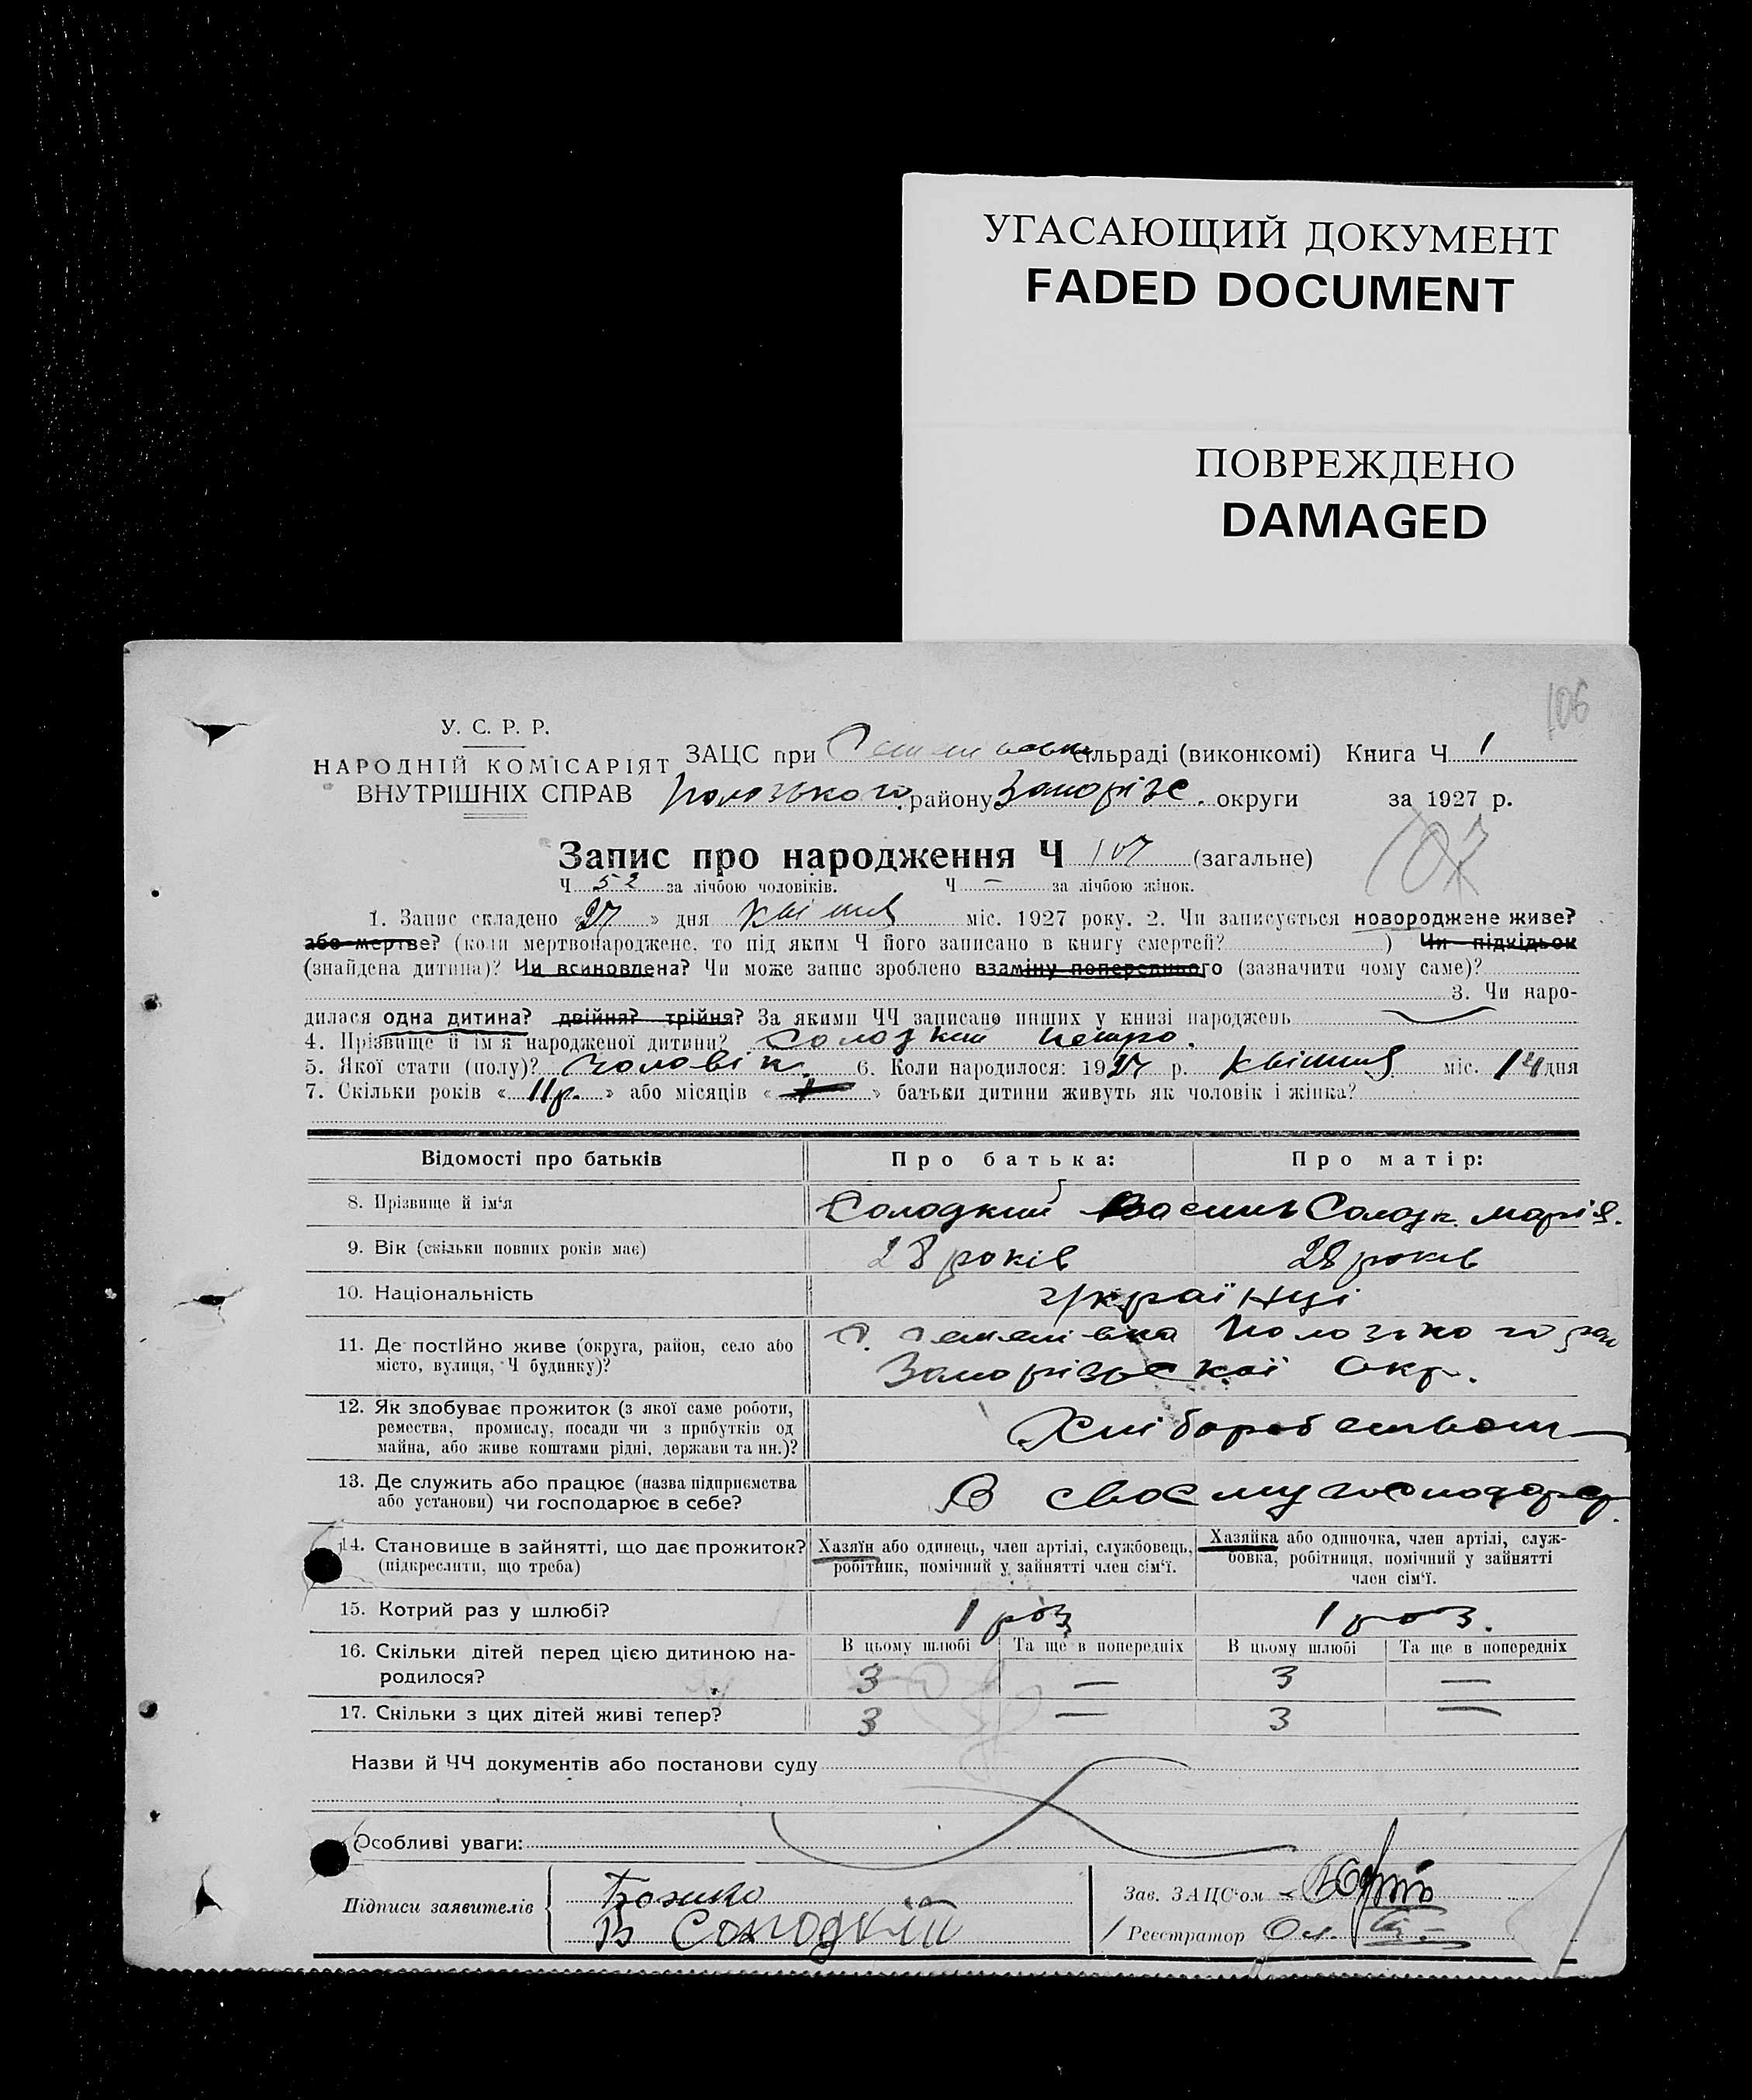 УГАСАЮЩИЙ ДОКУМЕНТ
FADED DOCUMENT
ПОВРЕЖДЕНО
DAMAGED
106
У. С. Р. Р.
НАРОДНІЙ КОМІСАРІЯТ
ВНУТРІШНІХ СПРАВ
ЗАЦС при сільраді (виконкомі) Книга Ч 1
Пологського району Запорізь. округи за 1927 р.
Запис про народження Ч 107 (загальне)
107
Ч 52 за лічбою чоловіків. Ч — за лічбою жінок.
1. Запис складено «27» дня квітня міс. 1927 року. 2. Чи записується новороджене живе?
або мертве? (коли мертвонароджене, то під яким Ч його записано в книгу смертей? ) Чи підкідьок
(знайдена дитина)? Чи всиновлена? Чи може запис зроблено взаміну попереднього (зазначити чому саме)?
3. Чи наро-
дилася одна дитина? двійня? трійня? За якими ЧЧ записано инших у книзі народжень
4. Прізвище й ім'я народженої дитини? Солодкий Петро.
5. Якої стати (полу)? чоловік. 6. Коли народилося: 1927 р. квітня міс. 14 дня
7. Скільки років «11р.» або місяців « » батьки дитини живуть як чоловік і жінка?
Відомості про батьків Про батька: Про матір:
8. Прізвище й ім'я Солодкий Василь Солодк. Марія.
9. Вік (скільки повних років має) 28 років 28 років
10. Національність Українці
11. Де постійно живе (округа, район, село або
місто, вулиця, Ч будинку)?
с. Пологського рай
Запорізької Окр.
12. Як здобуває прожиток (з якої саме роботи,
ремества, промислу, посади чи з прибутків од
майна, або живе коштами рідні, держави та ин.)?
Хліборобством
13. Де служить або працює (назва підприємства
або установи) чи господарює в себе?
В своєму господар.
14. Становище в зайнятті, що дає прожиток?
(підкреслити, що треба)
Хазяїн або одинець, член артілі, службовець,
робітник, помічний у зайнятті член сім'ї.
Хазяйка або одиночка, член артілі, служ-
бовка, робітниця, помічний у зайнятті
член сім'ї.
15. Котрий раз у шлюбі? 1 раз 1 раз.
16. Скільки дітей перед цією дитиною на-
родилося?
В цьому шлюбі Та ще в попередніх В цьому шлюбі Та ще в попередніх
3 — 3 —
17. Скільки з цих дітей живі тепер? 3 — 3 —
Назви й ЧЧ документів або постанови суду
Особливі уваги:
Підписи заявителів
В Солодкій
Зав. ЗАЦС'ом
Реєстратор